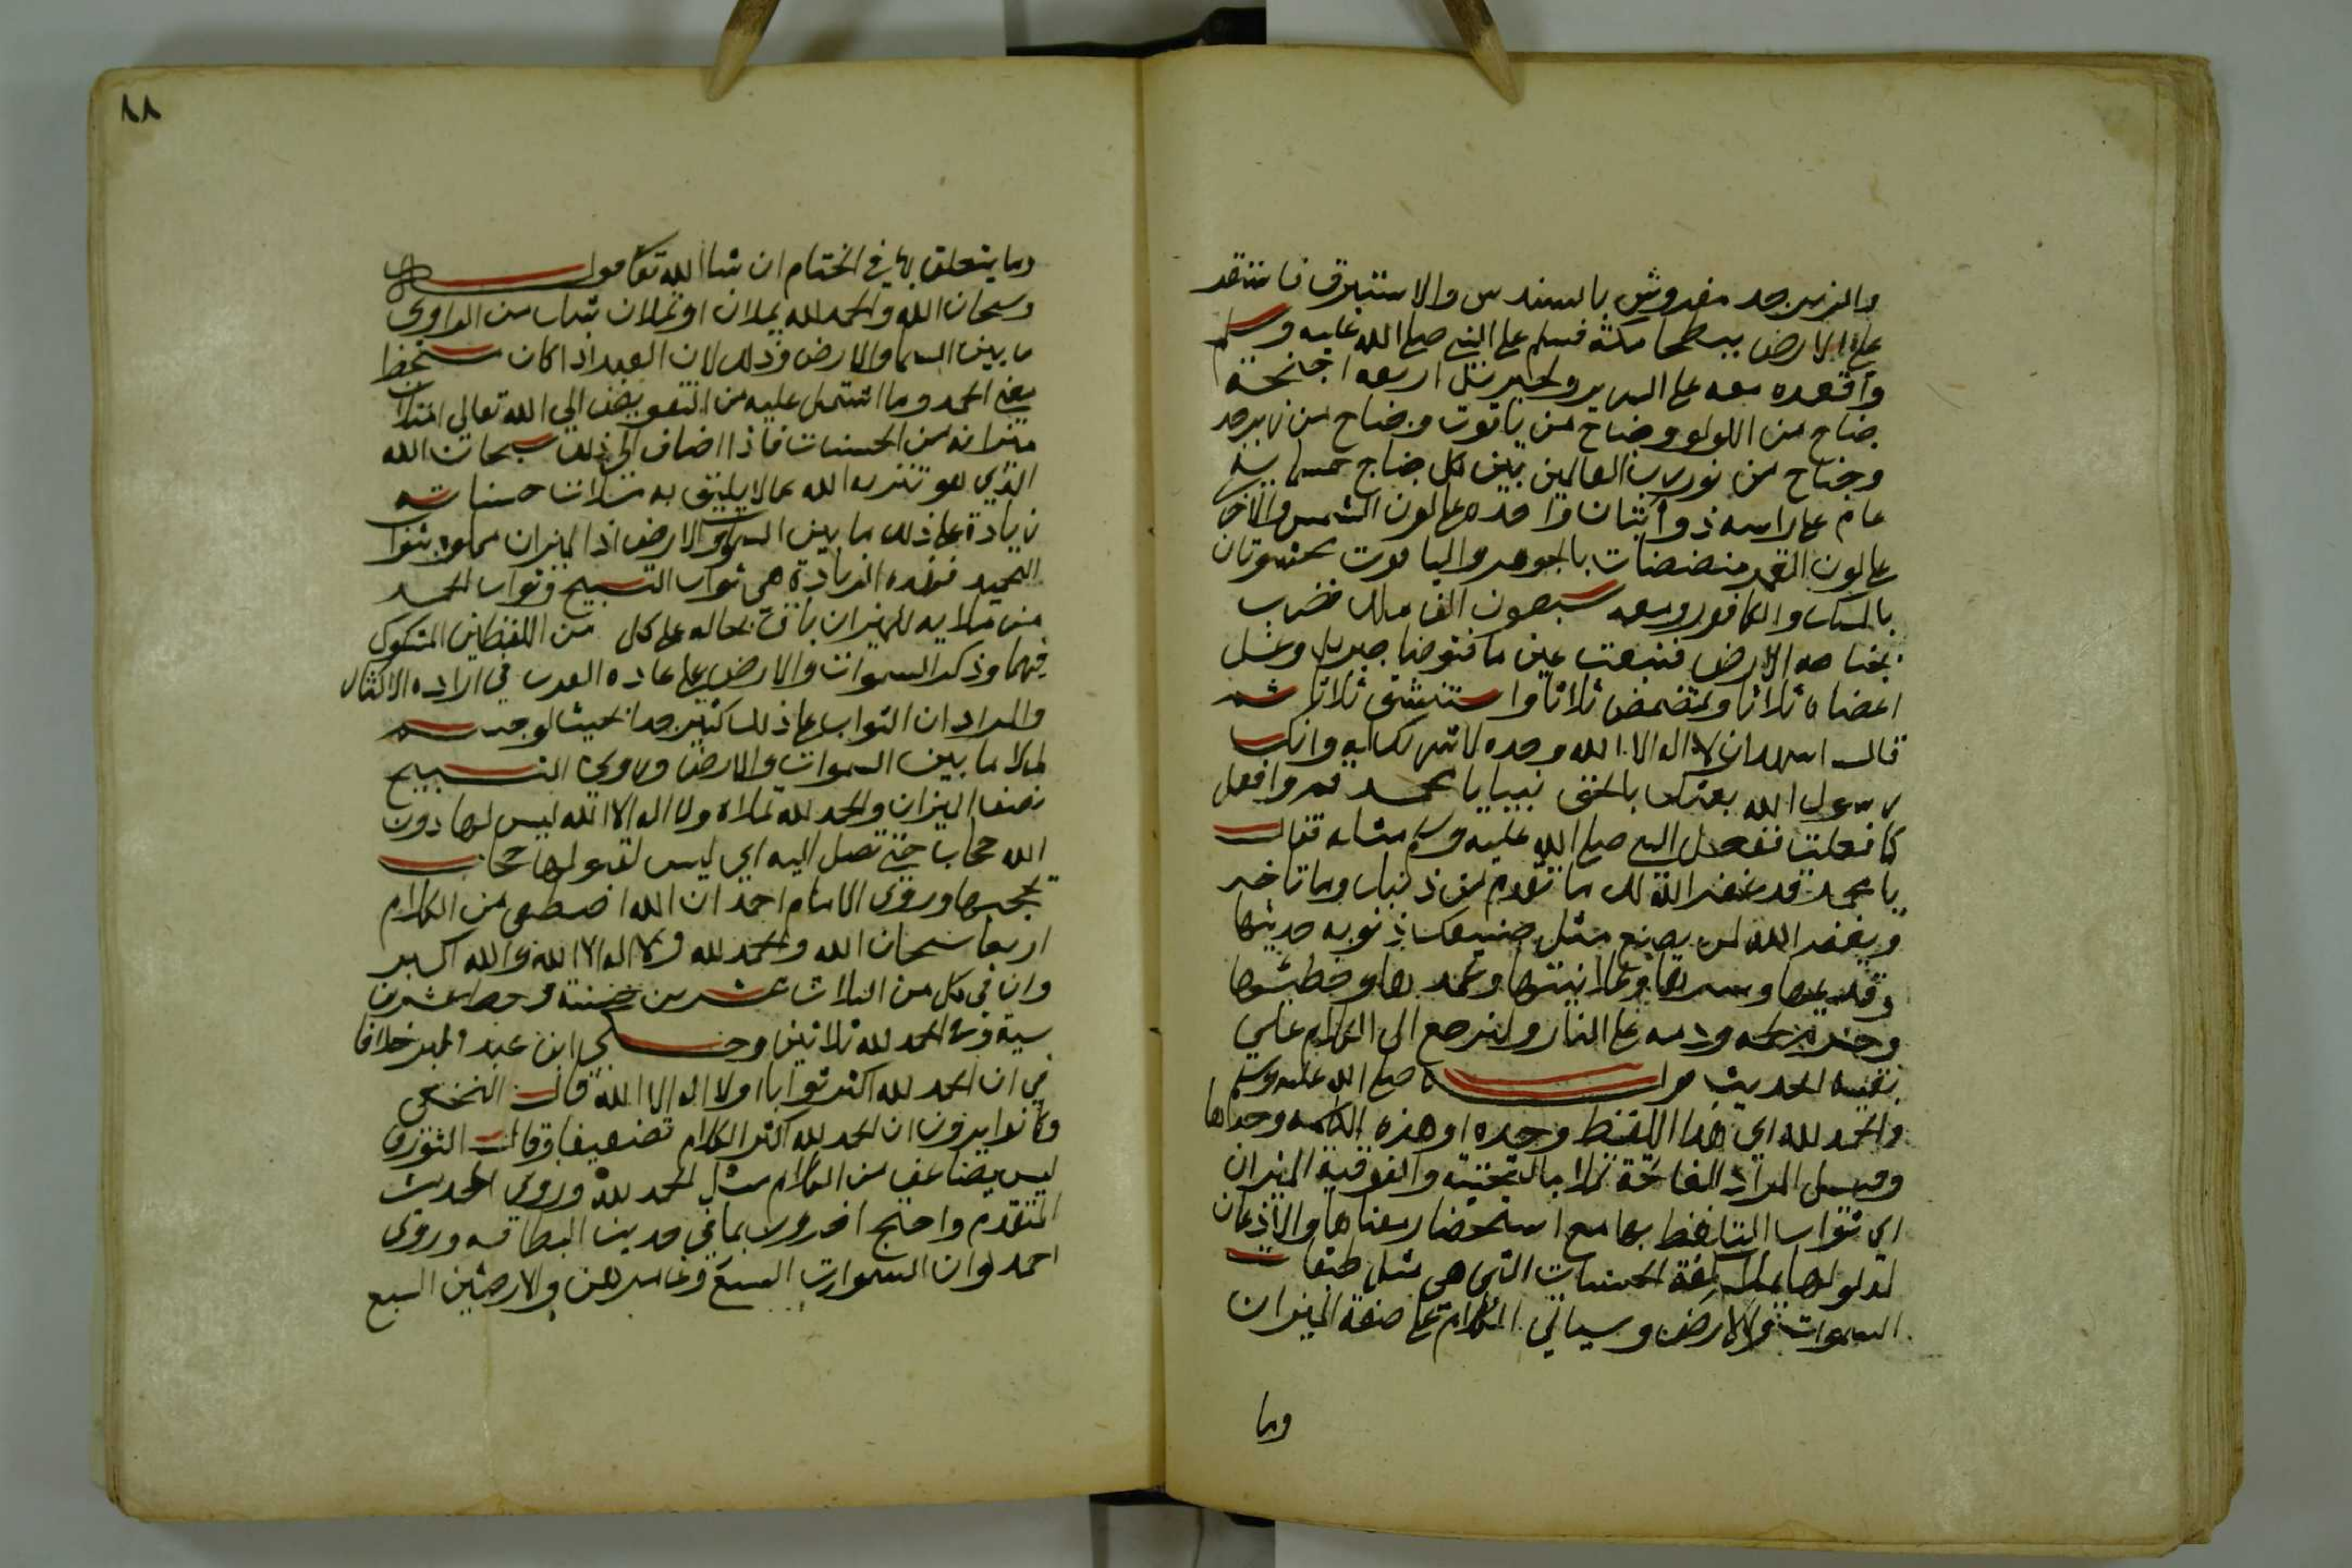 والزبرجد مفروش بالسندس والاستبرق فاستقر
على الارض ببطحا مكة فسلم على النبي صلى الله عليه وسلم
واقعده معه على السرير ولجبريل اربعه اجنحة
جناح من اللولو وجناح من ياقوت وجناح من زبرجد
وجناح من نور رب العالمين بين كل جناح خمسماية
عام على راسه ذوابتان واحده على لون الشمس والاخرى
على لون القمر بالجوهر والياقوت محشوتان
بالمسك والكافور ومعه سبعون الف ملك فضرب
بجناحه الارض فنبعت عين ما فتوضا جبريل وغسل
اعضاه ثلاثا وتمضمض ثلاثا واستنشق ثلاثا ثم
قال اشهد ان لا اله الا الله وحده لا شريك له وانك
رسول الله بعثك بالحق نبيا يا محمد قم وافعل
كما فعلت ففعل النبي صلى الله عليه وسلم مثله فقال
يا محمد قد غفر الله لك ما تقدم من ذنبك وما تاخر
ويغفر الله لمن يصنع مثل صنيعك ذنوبه حديثها
وقديمها وسرها وعلانيتها وعمدها وخطئها
وحرم لحمه ودمه على النار ولنرجع الى الكلام على
بقية الحديث قوله صلى الله عليه وسلم
والحمد لله اي هذا اللفظ وحده او هذه الكلمه وحدها
وقيل المراد الفاتحة تملا بالتحتية والفوقية الميزان
اي ثواب التلفظ بها مع استحضار معناها والاذعان
لمدلولها يملا كفة الحسنات التي هي مثل طبقات
السموات والارض وسياتي الكلام على صفة الميزان
وما
٨٨
وما يتعلق بها في الختام ان شا الله تعالى قوله
وسبحان الله والحمد لله يملان او تملان شك من الراوي
ما بين السما والارض وذلك لان العبد اذا كان مستحضرا
معنى الحمد وما اشتمل عليه من التفويض الى الله تعالى امتلات
ميزانه من الحسنات فاذا اضاف الى ذلك سبحان الله
الذي هو تنزيه الله عما لا يليق به ملات حسناته
زيادة على ذلك ما بين السموات والارض اذ الميزان مملوه بثواب
التحميد فهذه الزيادة هي ثواب التسبيح وثواب الحمد
من ملايه للميزان باق بحاله على كل من اللفظين المشكوك
فيهما وذكر السموات والارض على عادة العرب في ارادة الاكثار
والمراد ان الثواب على ذلك كثير جدا بحيث لو جسم
لملا ما بين السموات والارض وروي التسبيح
نصف الميزان والحمد لله تملاه ولا اله الا الله ليس لها دون
الله حجاب حتى تصل اليه اي ليس لقبولها حجاب
يحجبها وروى الامام احمد ان الله اصطفى من الكلام
اربعا سبحان الله والحمد لله ولا اله الا الله والله اكبر
وان في كل من الثلاث عشرين حسنة وحط عشرين
سية وفي الحمد لله ثلاثين وحكي ابن عبد البر خلافا
في ان الحمد لله اكثر ثوابا او لا اله الا الله قال النخعي
وكانوا يرون ان الحمد لله اكثر الكلام تضعيفا وقال الثوري
ليس يضاعف من الكلام مثل الحمد لله وروى الحديث
المتقدم واحتج اخرون بما في حديث البطاقه وروى
احمد لو ان السموات السبع وعامرهن والارضين السبع